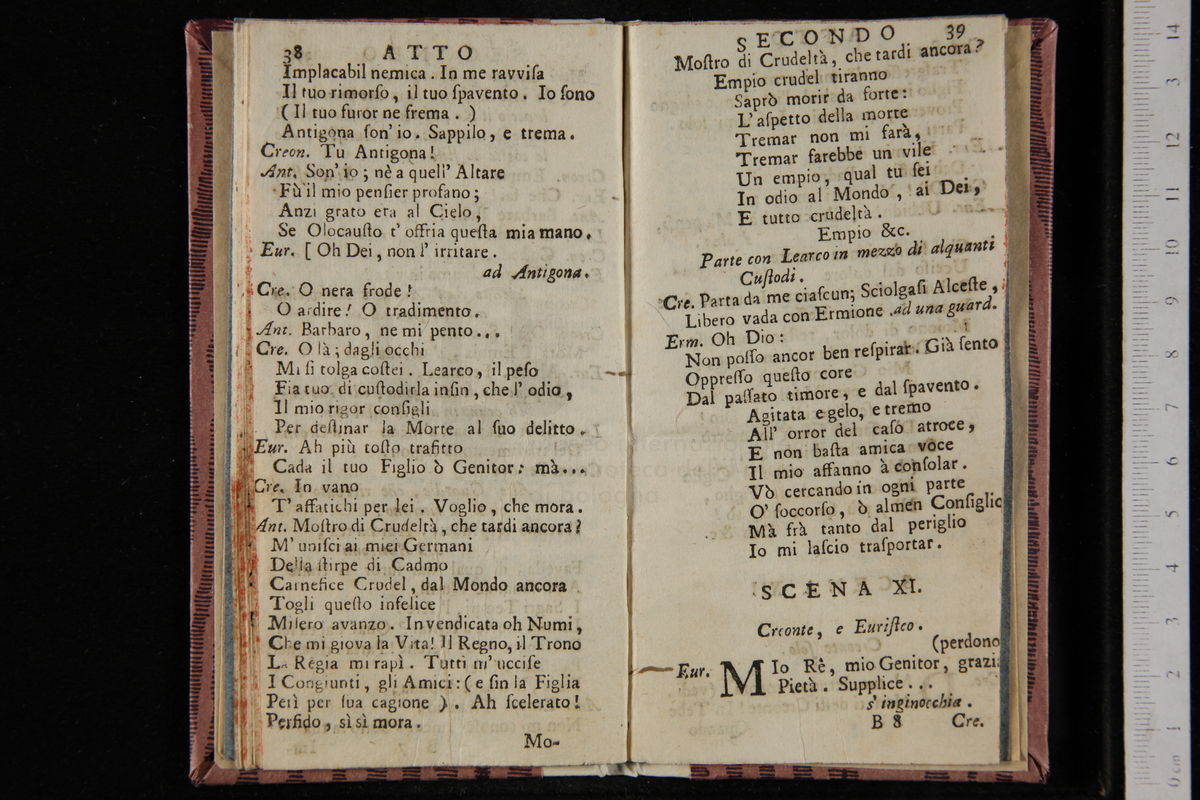 38 ATTO
Implacabil nemica. In me ravviſa
Il tuo rimorſo, il tuo ſpavento. Io ſono
(Il tuo furor ne frema.)
Antigona ſon' io. Sappilo, e trema.
Creon. Tu Antigona!
Ant. Son' io; nè a quell' Altare
Fù il mio penſier profano;
Anzi grato era al Cielo,
Se Olocauſto t' offria queſta mia mano.
Eur. [ Oh Dei, non l' irritare.
ad Antigona.
Cre. O nera frode!
O ardire! O tradimento.
Ant. Barbaro, ne mi pento...
Cre. O là; dagli occhi
Mi ſi tolga coſtei. Learco, il peſo
Fia tuo di cuſtodirla inſin, che l' odio,
Il mio rigor conſigli
Per deſtinar la Morte al ſuo delitto.
Eur. Ah più toſto trafitto
Cada il tuo Figlio ò Genitor: mà...
Cre. In vano
T' affatichi per lei. Voglio, che mora.
Ant. Moſtro di Crudeltà, che tardi ancora?
M' uniſci ai miei Germani
Della ſtirpe di Cadmo
Carnefice Crudel, dal Mondo ancora
Togli queſto infelice
Miſero avanzo. Invendicata oh Numi,
Che mi giova la Vita! Il Regno, il Trono
La Regia mi rapì. Tutti m' ucciſe
I Congiunti, gli Amici: (e ſin la Figlia
Perì per ſua cagione). Ah ſcelerato!
Perfido, sì sì mora.
Mo-
SECONDO 39
Moſtro di Crudeltà, che tardi ancora?
Empio crudel tiranno
Saprò morir da forte:
L' aſpetto della morte
Tremar non mi farà,
Tremar farebbe un vile
Un empio, qual tu ſei
In odio al Mondo, ai Dei,
E tutto crudeltà.
Empio &c.
Parte con Learco in mezzo di alquanti
Cuſtodi.
Cre. Parta da me ciaſcun; Sciolgaſi Alceſte,
Libero vada con Ermione. ad una guard.
Erm. Oh Dio:
Non poſſo ancor ben reſpirar. Già ſento
Oppreſſo queſto core
Dal paſſato timore, e dal ſpavento.
Agitata e gelo, e tremo
All' orror del caſo atroce,
E non baſta amica voce
Il mio affanno à conſolar.
Vò cercando in ogni parte
O' ſoccorſo, ò almen Conſiglio
Mà frà tanto dal periglio
Io mi laſcio traſportar.
SCENA XI.
Creonte, e Euriſteo.
(perdono
Eur. MIo Rê, mio Genitor, grazia
Pietà. Supplice...
s' inginocchia.
B 8 Cre.